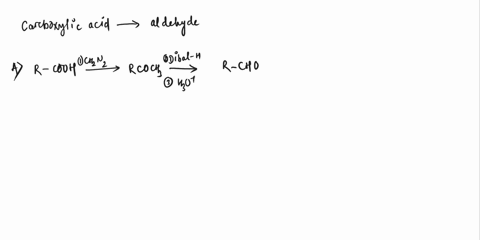 Carboxylic acid ⟶ aldehyde
A) R-COOH ①CH₂N₂ ⟶ RCOCH₃ ①Dibal-H ⟶ ② H₃O⁺ R-CHO